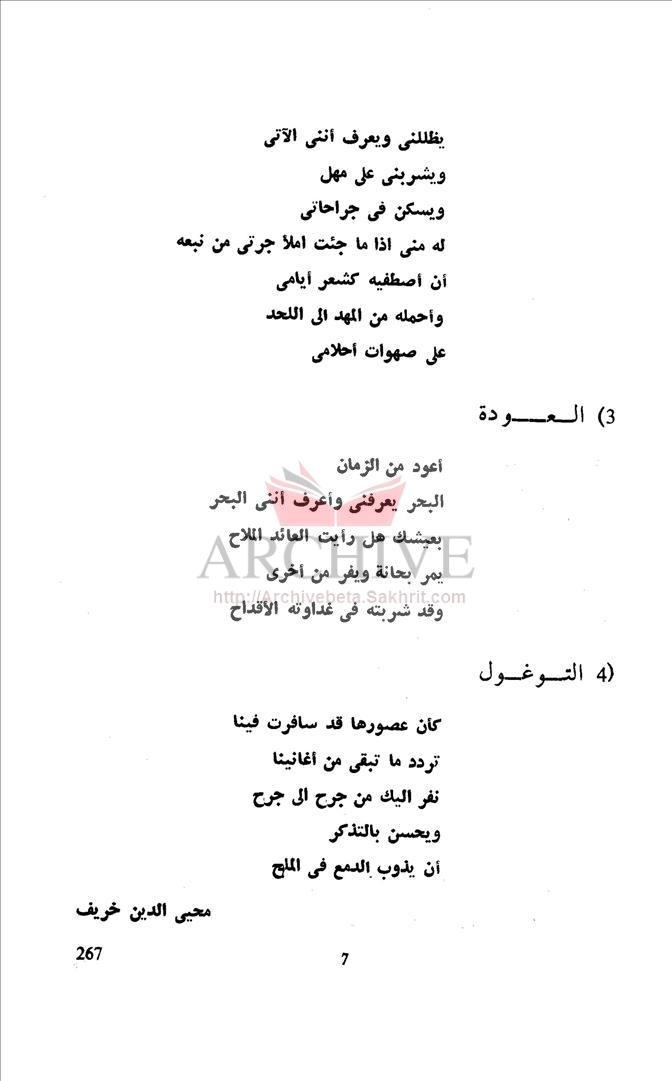 يظللنى ويعرف أننى الآتى
ويشربنى على مهل
ويسكن فى جراحاتى
له منى اذا ما جئت املأ جرتى من نبعه
أن أصطفيه كشعر أيامى
وأحمله من المهد الى اللحد
على صهوات أحلامى
3) العـــودة
أعود من الزمان
البحر يعرفنى وأعرف أننى البحر
بعيشك هل رأيت العائد الملاح
ARCHIVE
يمر بحانة ويفر من أخرى
http://Archivebeta.Sakhrit.com
وقد شربته فى غداوته الأقداح
4) التــوغــول
كأن عصورها قد سافرت فينا
تردد ما تبقى من أغانينا
نفر اليك من جرح الى جرح
ويحسن بالتذكر
أن يذوب الدمع فى الملح
محيى الدين خريف
7
267